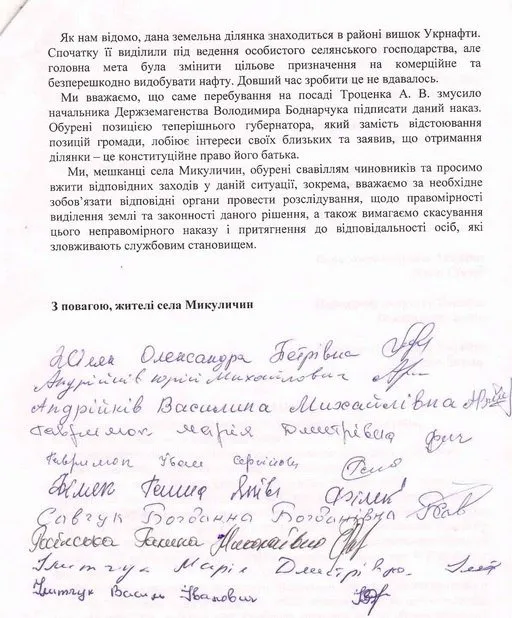 Як нам відомо, дана земельна ділянка знаходиться в районі вишок Укрнафти.
Спочатку її виділили під ведення особистого селянського господарства, але
головна мета була змінити цільове призначення на комерційне та
безперешкодно видобувати нафту. Довший час зробити це не вдавалось.
Ми вважаємо, що саме перебування на посаді Троценка А. В. змусило
начальника Держземагенства Володимира Боднарчука підписати даний наказ.
Обурені позицією теперішнього губернатора, який замість відстоювання
позицій громади, лобіює інтереси своїх близьких та заявив, що отримання
ділянки – це конституційне право його батька.
Ми, мешканці села Микуличин, обурені свавіллям чиновників та просимо
вжити відповідних заходів у даній ситуації, зокрема, вважаємо за необхідне
зобов'язати відповідні органи провести розслідування, щодо правомірності
виділення землі та законності даного рішення, а також вимагаємо скасування
цього неправомірного наказу і притягнення до відповідальності осіб, які
зловживають службовим становищем.
З повагою, жителі села Микуличин
Олександра Петрівна
Андрійків Юрій Михайлович
Андрійків Василина Михайлівна
Марія Дмитрівна
Іван
Савчук Богданна Богданівна
Галина Миколаївна
Марія Дмитрівна
Василь Іванович